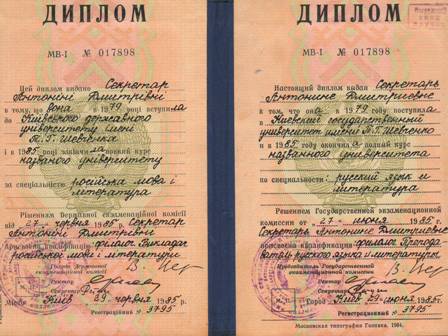 ДИПЛОМ
МВ-I № 017898
Цей диплом видано Секретар
Антоніні Дмитрівні
в тому, що вона в 1979 році вступила
до Київського державного
університету імені
Т.Г. Шевченка
і в 1985 році закінчила повний курс
названого університету
за спеціальністю російська мова і
література
Рішенням Державної екзаменаційної комісії
від 27 червня 1985 р. Секретар
Антоніні Дмитрівні
присвоєно кваліфікацію філолог. Викладач
російської мови і літератури
Голова Державної
екзаменаційної комісії
Ректор
Секретар
Місто Київ 29 червня 1985 р.
Реєстраційний № 3795
ДИПЛОМ
МВ-I № 017898
Настоящий диплом выдан Секретарь
Антонине Дмитриевне
в том, что она в 1979 году поступила
в Киевский государственный
университет имени Т.Г. Шевченко
и в 1985 году окончила полный курс
названного университета
по специальности русский язык и
литература
Решением Государственной экзаменационной
комиссии от 27 июня 1985 г.
Секретарь Антонине Дмитриевне
присвоена квалификация филолог. Препода-
ватель русского языка и литературы
Председатель Государственной
экзаменационной комиссии
Ректор
Секретарь
Город Киев 29 июня 1985 г.
Регистрационный № 3795
Московская типография Гознака. 1984.